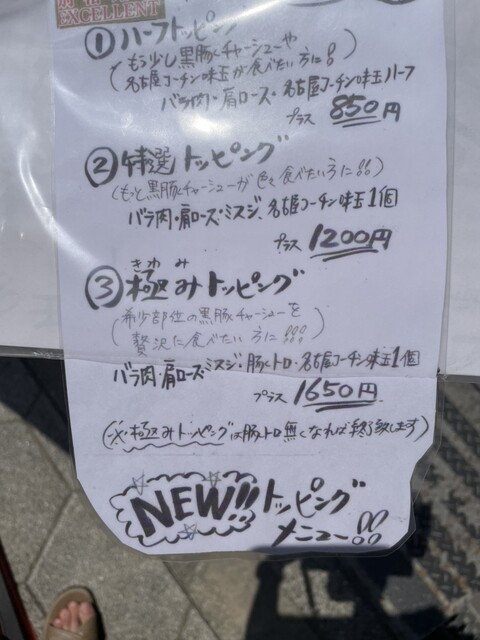 EXCELLENT
① ハーフトッピング
(もう少し黒豚チャーシューや
名古屋コーチン味玉が食べたい方に!)
バラ肉・肩ロース・名古屋コーチン味玉ハーフ
プラス 850円
② 特選トッピング
(もっと黒豚チャーシューが色々食べたい方に!!)
バラ肉・肩ロース・ミスジ、名古屋コーチン味玉1個
プラス 1200円
きわみ
③ 極みトッピング
(希少部位の黒豚チャーシューを
贅沢に食べたい方に!!!)
バラ肉・肩ロース・ミスジ・豚トロ・名古屋コーチン味玉1個
プラス 1650円
(※極みトッピングは豚トロ無くなれば終了致します)
NEW!! トッピング
メニュー!!